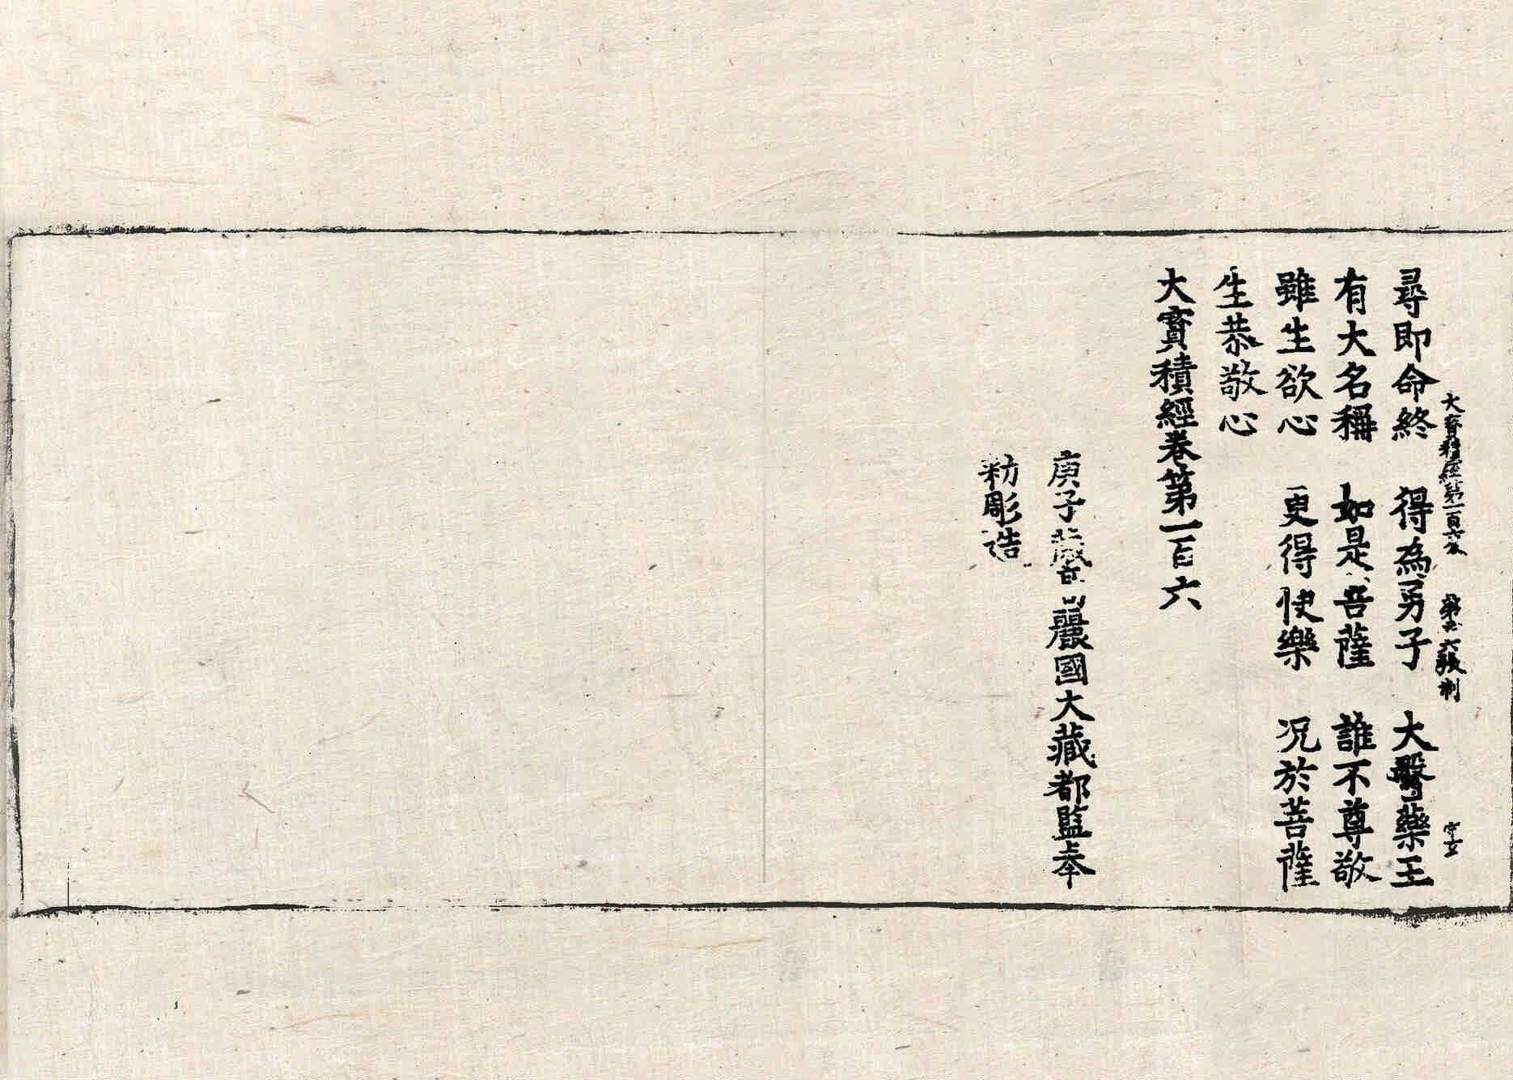 大寶積經第一百六卷 第六張 制 守立
尋即命終 得為勇子 大醫藥王
有大名稱 如是菩薩 誰不尊敬
雖生欲心 更得快樂 况於菩薩
生恭敬心
大寶積經卷第一百六
庚子歲高麗國大藏都監奉
勑彫造